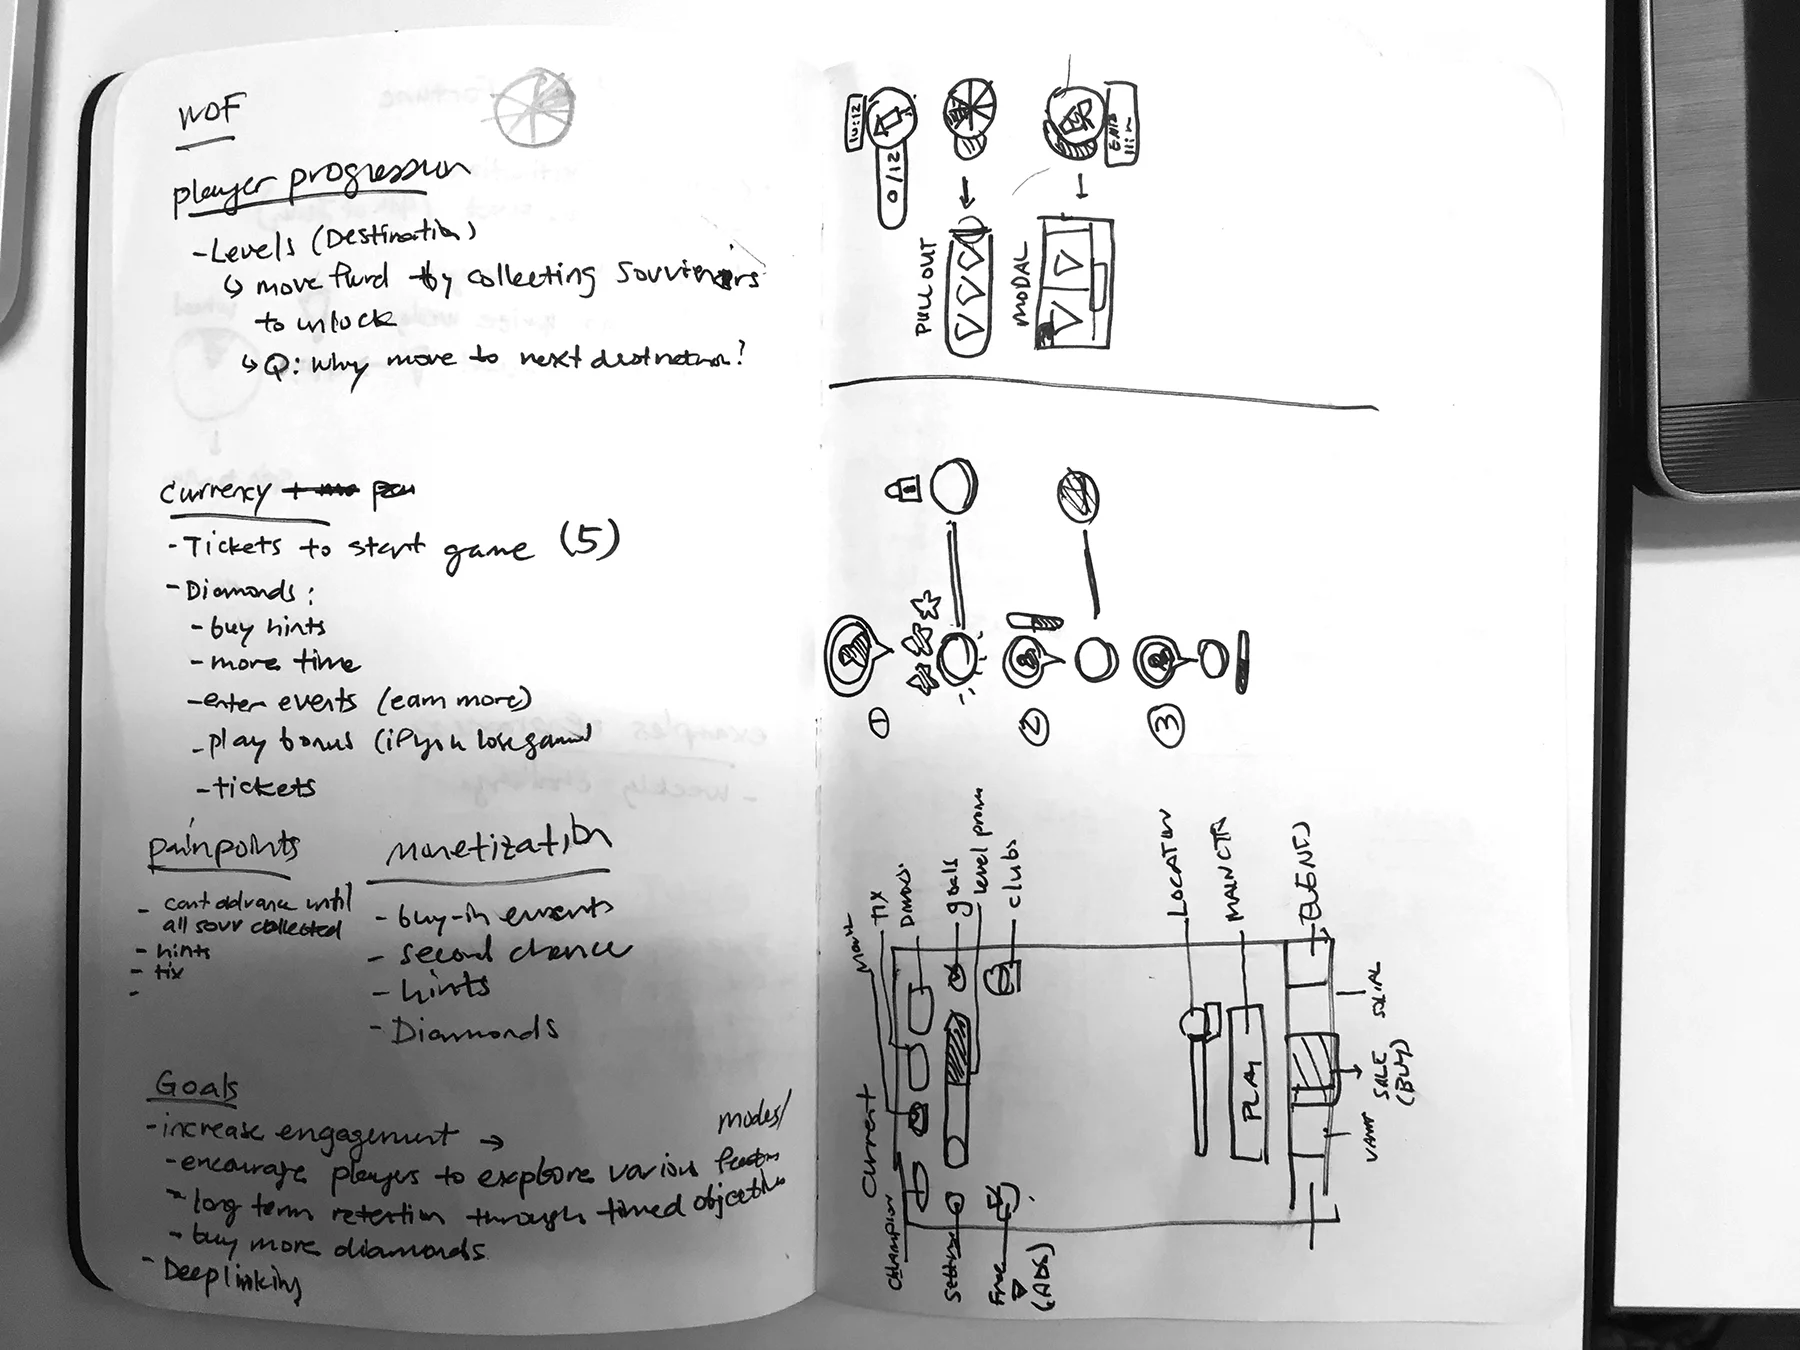 WOF
player progression
- Levels (Destination)
↳ move fwrd by collecting souvieners
to unlock
↳ Q: Why move to next destination?
Currency
- Tickets to start game (5)
- Diamonds:
- buy hints
- more time
- enter events (earn more)
- play bonus (if you lose game)
- tickets
painpoints
- cant advance until
all souv collected
- hints
- tix
-
Monetization
- buy-in events
- second chance
- hints
- Diamonds
Goals
- increase engagement →
modes/
- encourage players to explore various
- long term retention through timed objectives
- buy more diamonds
- Deeplinking
10:12
0/12
PULL OUT
MODAL
1
2
3
Current
CHAMPION
TIX
Setting
Free
(ADS)
level prom
clubs
LOCATION
MAIN CTR
PLAY
SOCIAL
SALE
(BUY)